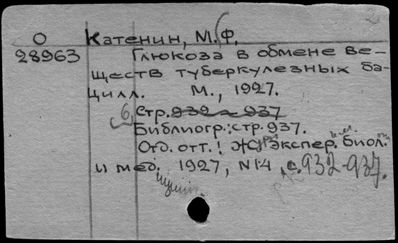 О Катенин, М.Ф.
28963 Глюкоза в обмене ве-
ществ туберкулезных ба-
цилл. М., 1927.
6, стр. 932 - 937
Библиогр.: стр. 937.
Отд. отт.: Ж. экспер. биол.
и мед. 1927, N14, с. 932-937.